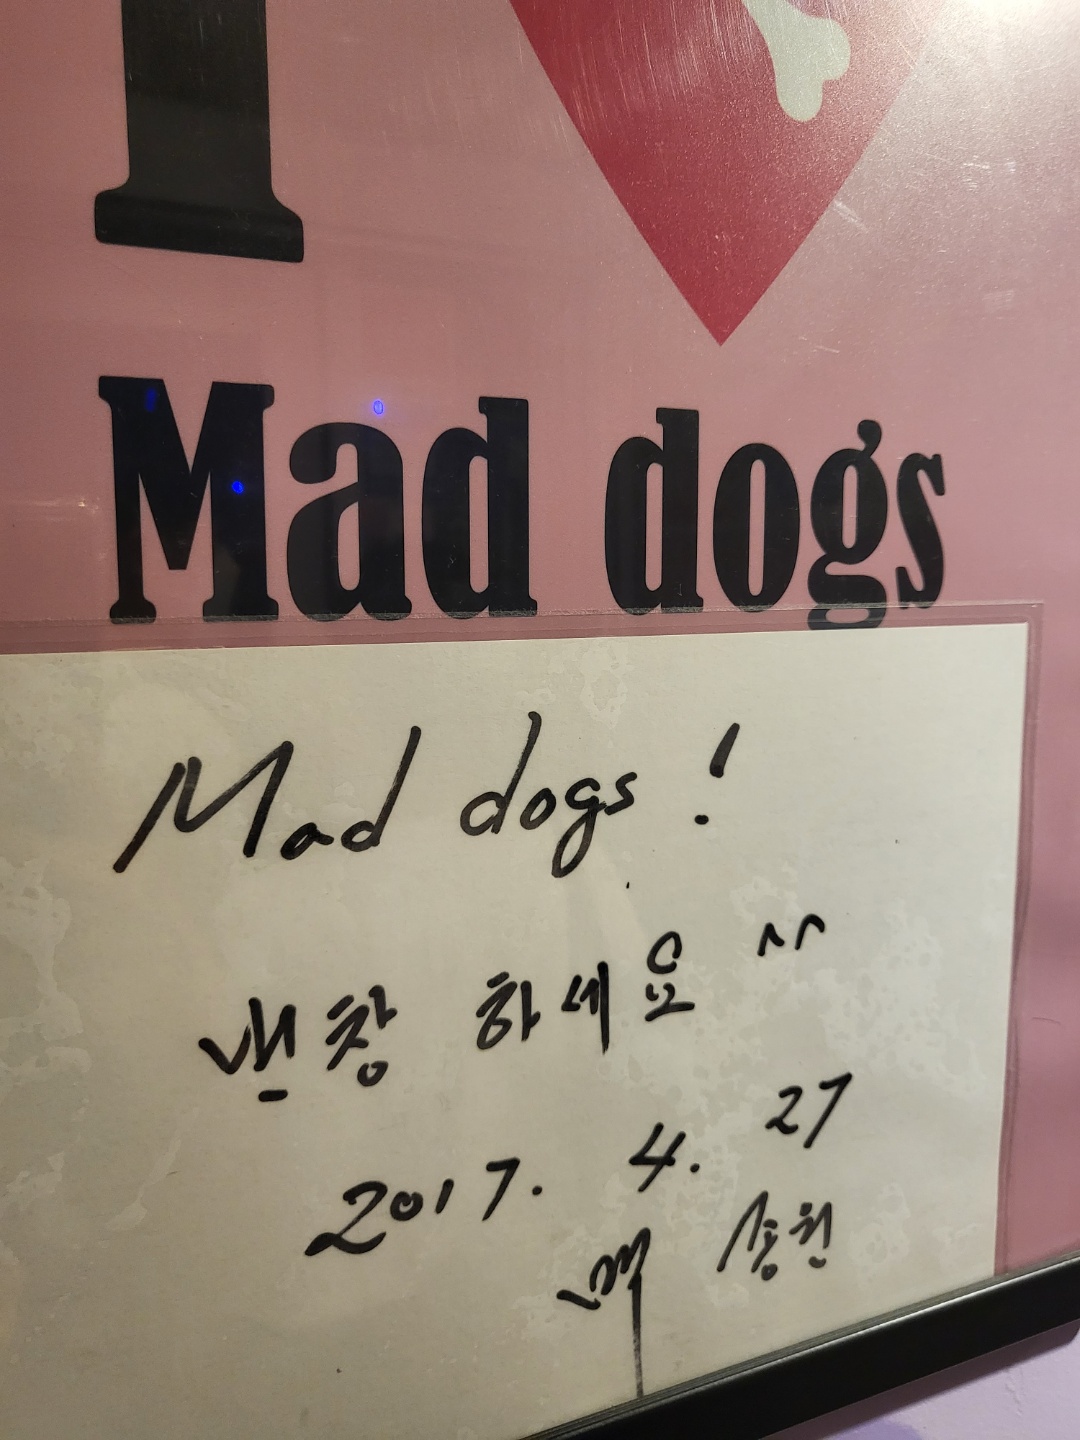 I
Mad dogs
Mad dogs !
번창 하세요 ^^
2017. 4. 27